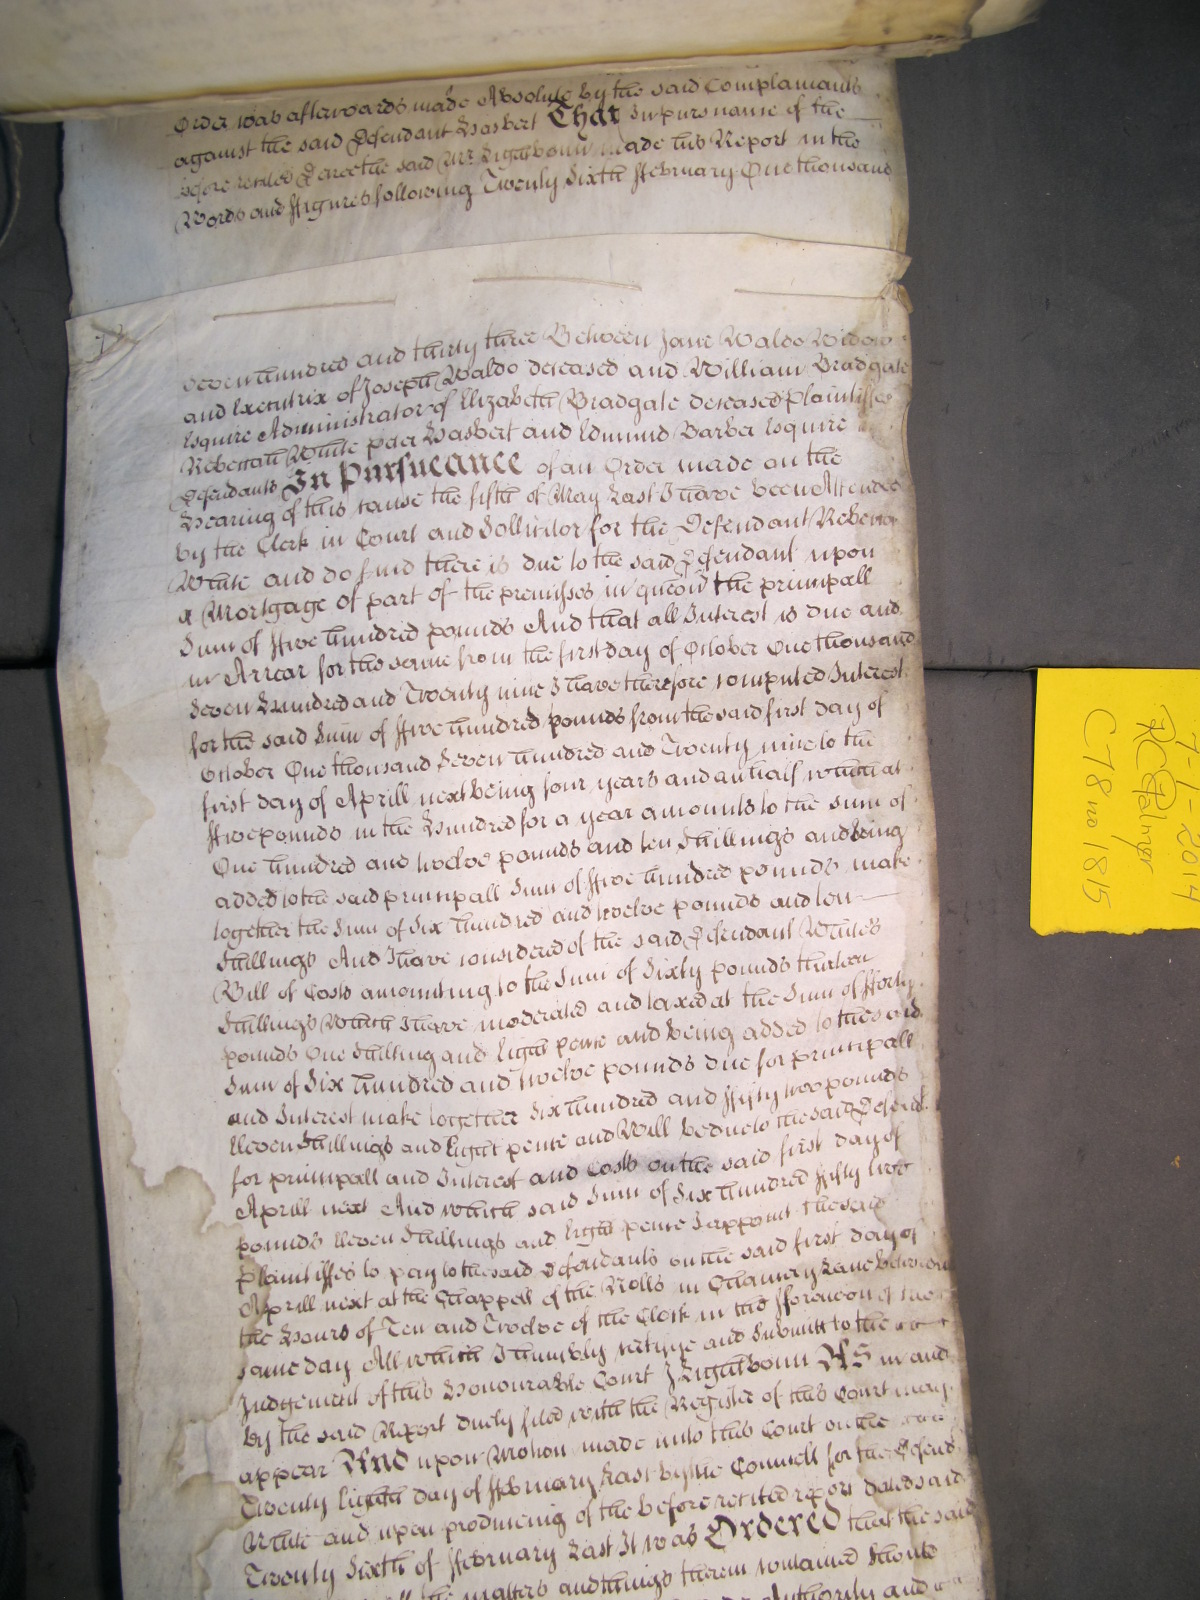 Order was afterwards made Absolute by the said Complainants
against the said Defendant Hasbert That In pursuance of the
before recited Decree the said Mr. Lightboun made his Report in the
Words and ffigures following Twenty Sixth ffebruary One thousand
Seven hundred and thirty three Between Jane Waldo Widow
and Executrix of Joseph Waldo deceased and William Bradgate
Esquire Administrator of Elizabeth Bradgate deceased Plaintiffes
Rebeccah White peter Hasbert and Edmund Barker Esquire
Defendants In Pursueance of an Order made on the
Hearing of this cause the fifth of May Last I have been Attended
by the Clerk in Court and Sollicitor for the Defendant Rebecca
White and do find there is due to the said Defendant upon
a Mortgage of part of the premisses in queõn the principall
Sum of ffive hundred pounds And that all Interest is due and
in Arrear for the same from the first day of October One thousand
Seven Hundred and Twenty nine I have therefore computed Interest
for the said Sum of ffive hundred pounds from the said first day of
October One thousand Seven hundred and Twenty nine to the
first day of Aprill next being four years and an half which at
ffive pounds in the Hundred for a year amounts to the sum of
One hundred and twelve pounds and ten Shillings and being
added to the said principall Sum of ffive hundred pounds make
together the Sum of Six hundred and twelve pounds and ten
Shillings And I have considered of the said Defendant White's
Bill of Costs amounting to the Sum of Sixty pounds thirteen
Shillings Which I have moderated and taxed at the Sum of fforty
pounds One Shilling and Eight pence and being added to the said
Sum of Six hundred and twelve pounds due for principall
and Interest make together Six hundred and ffifty two pounds
Eleven Shillings and Eight pence and Will be due to the said Defend.t
for principall and Interest and Costs on the said first day of
Aprill next And which said Sum of Six hundred ffifty two
pounds Eleven Shillings and Eight pence I appoint the said
plaintiffes to pay to the said Defendants on the said first day of
Aprill next at the Chappell of the Rolls in Chancery Lane between
the Hours of Ten and Twelve of the Clock in the fforenoon of the
same day All which I humbly certifye and Submitt to the
Judgement of this Honourable Court J Lightboun As in and
by the said Report duely filed with the Register of this Court may
appear And upon Motion made unto this Court on the
Twenty Eighth day of ffebruary Last by the Councell for the Defend.t
White and upon producing of the before recited report dated said
Twenty Sixth of ffebruary Last It was Ordered that the said
the matters and things therein contained should
Authority and
7-1-2014
RCPalmer
C78 no 1815